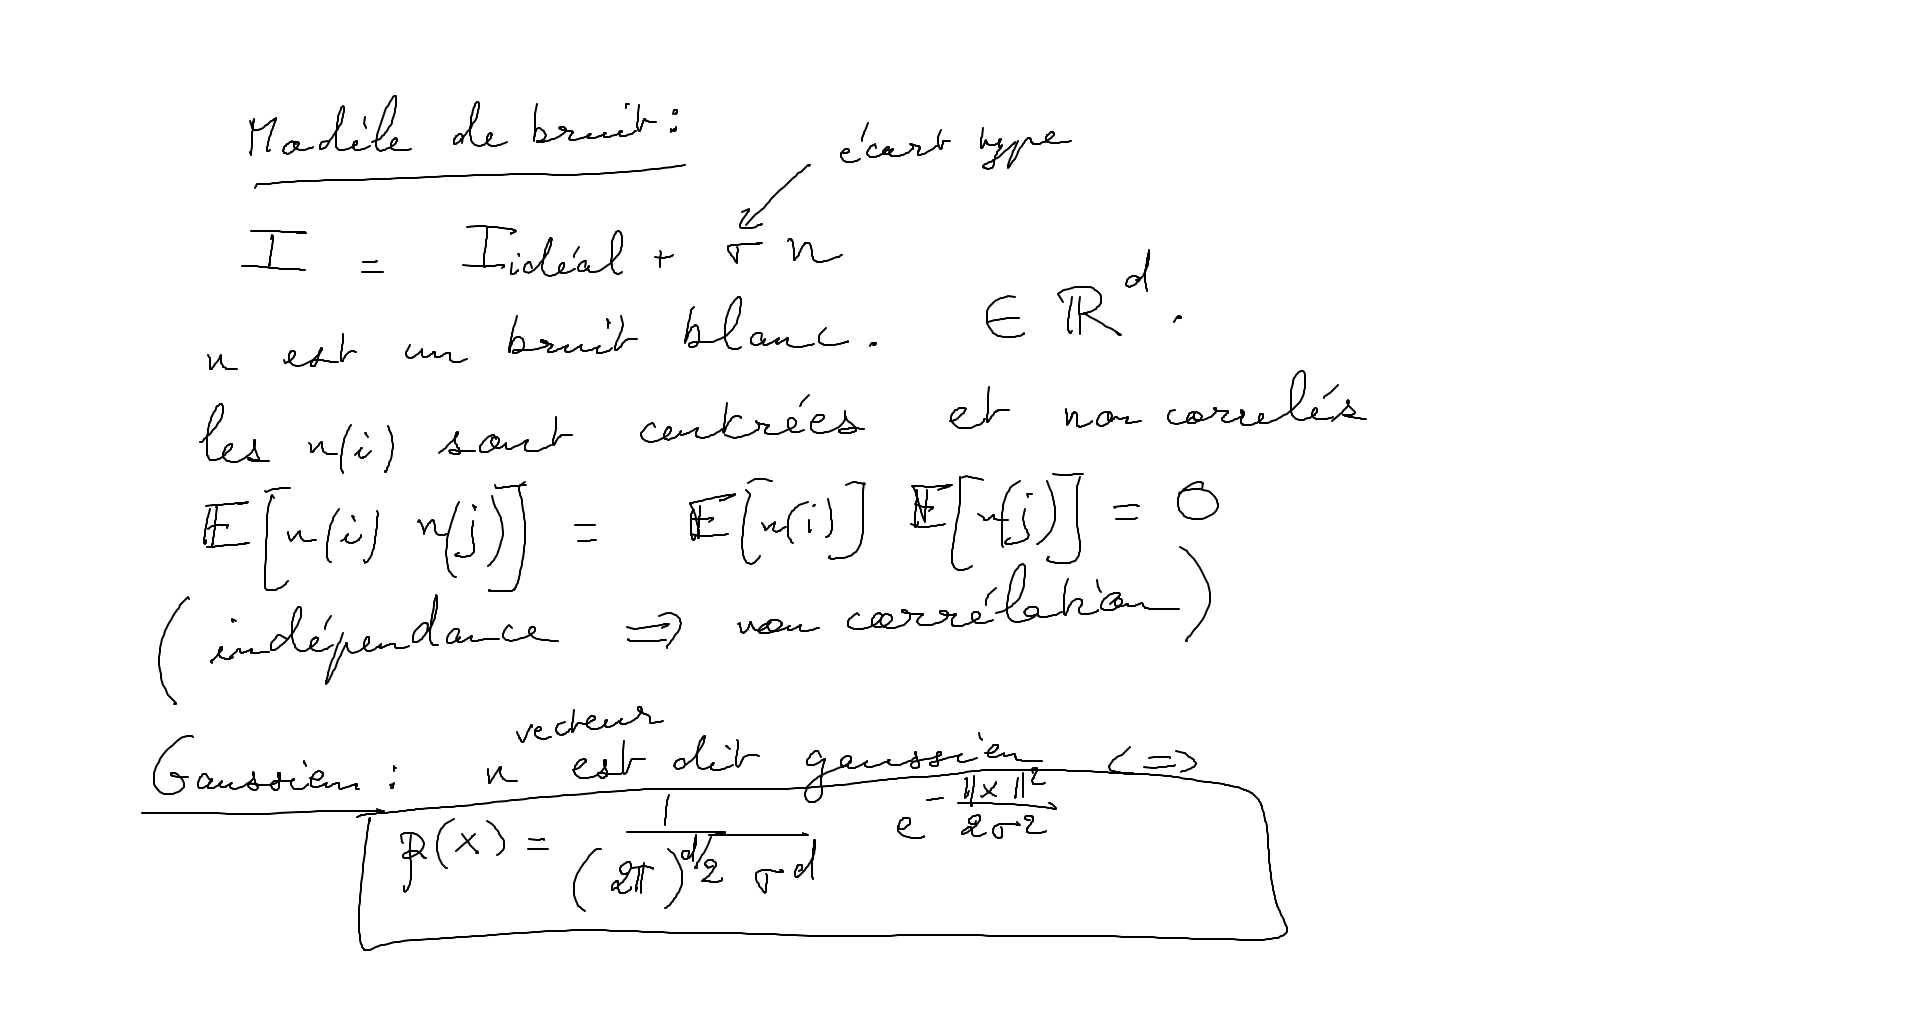 Modèle de bruit :
écart type
I = I idéal + σ n
n est un bruit blanc. ∈ ℝ^d.
les n(i) sont centrées et non correlés
𝔼[n(i) n(j)] = 𝔼[n(i)] 𝔼[n(j)] = 0
(indépendance => non corrélation)
vecteur
Gaussien : n est dit gaussien <=>
p(x) = 1 / ((2π)^{d/2} σ^d) e^{-‖x‖²/2σ²}